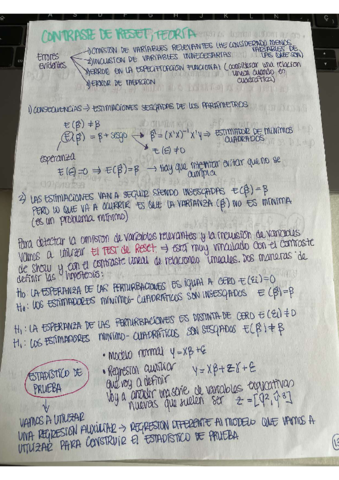 CONTRASTE DE RESET, TEORÍA
Errores evidentes
1) OMISIÓN DE VARIABLES RELEVANTES (HE CONSIDERADO MENOS VARIABLES DE LAS QUE SON)
2) INCLUSIÓN DE VARIABLES INNECESARIAS
3) ERROR EN LA ESPECIFICACIÓN FUNCIONAL (considerar una relación lineal cuando es cuadrática)
4) ERROR DE MEDICIÓN
1) CONSECUENCIAS → ESTIMACIONES SESGADAS DE LOS PARÁMETROS
E(β̂) ≠ β
E(β̂) = β + sesgo → β̂ = (X'X)⁻¹X'y → ESTIMADOR DE MÍNIMOS CUADRADOS
esperanza
E(ε) ≠ 0
E(ε) = 0 → E(β̂) = β → hay que intentar evitar que no se cumpla
2) LAS ESTIMACIONES VAN A SEGUIR SIENDO INSESGADAS E(β̂) = β
PERO LO QUE VA A OCURRIR ES QUE LA VARIANZA (β̂) NO ES MÍNIMA
(es un problema mínimo)
Para detectar la omisión de variables relevantes y la inclusión de variables
vamos a utilizar el TEST DE RESET → está muy vinculado con el contraste
de Chow y con el contraste lineal de relaciones lineales. Dos maneras de
definir las hipótesis:
H₀: LA ESPERANZA DE LAS PERTURBACIONES ES IGUAL A CERO E(εi) = 0
H₀: LOS ESTIMADORES MÍNIMO-CUADRÁTICOS SON INSESGADOS E(β̂) = β
H₁: LA ESPERANZA DE LAS PERTURBACIONES ES DISTINTA DE CERO E(εi) ≠ 0
H₁: LOS ESTIMADORES MÍNIMO-CUADRÁTICOS SON SESGADOS E(β̂) ≠ β
ESTADÍSTICO DE PRUEBA
• Modelo normal Y = Xβ + ε
• Regresión auxiliar Y = Xβ + Zγ + ε
que voy a definir
Voy a añadir una serie de variables explicativas
nuevas que suelen ser Z = [ŷ², ŷ³]
VAMOS A UTILIZAR
UNA REGRESIÓN AUXILIAR → REGRESIÓN DIFERENTE AL MODELO QUE VAMOS A
UTILIZAR PARA CONSTRUIR EL ESTADÍSTICO DE PRUEBA